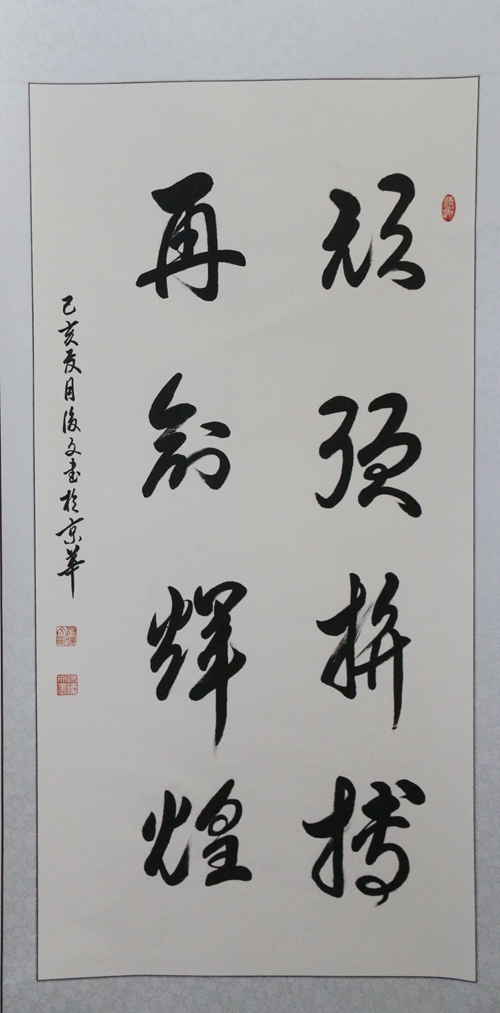 顽强拼搏
再创辉煌
己亥夏月俊文书于京华